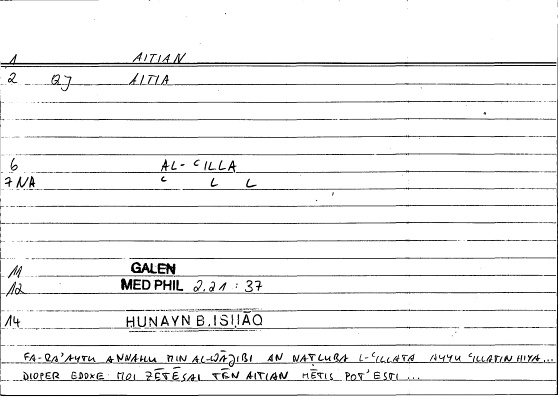 1 AITIAN
2 QJ AITIA
6 AL-ʿILLA
7 NA ʿ L L
11 GALEN
12 MED PHIL 2.21 : 37
14 HUNAYN B. ISḤĀQ
FA-RA'AYTU ANNAHU MIN AL-WĀǦIBI AN NAṬLUBA L-ʿILLATA AYYU ʿILLATIN HIYA...
DIOPER EDOXE MOI ZĒTĒSAI TĒN AITIAN HĒTIS POT' ESTI...